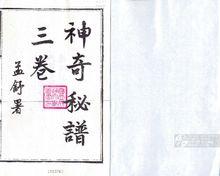 神奇秘譜
三卷
孟舒署